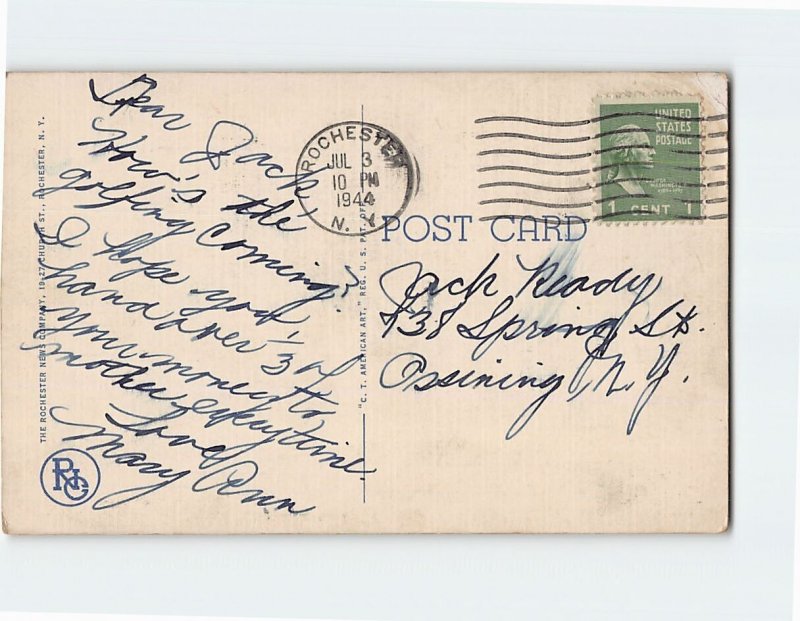 Dear Jack,
How's the
golfing coming?
I hope you
hand over 1/3 of
your money to
mother everytime.
Love
Mary Ann
THE ROCHESTER NEWS COMPANY, 19-27 CHURCH ST., ROCHESTER, N. Y.
RNC
"C. T. AMERICAN ART," REG. U. S. PAT. OFF.
ROCHESTER
JUL 3
10 PM
1944
N. Y.
UNITED
STATES
POSTAGE
WASHINGTON
1 CENT 1
POST CARD
Jack Ready
738 Spring St.
Ossining, N. Y.